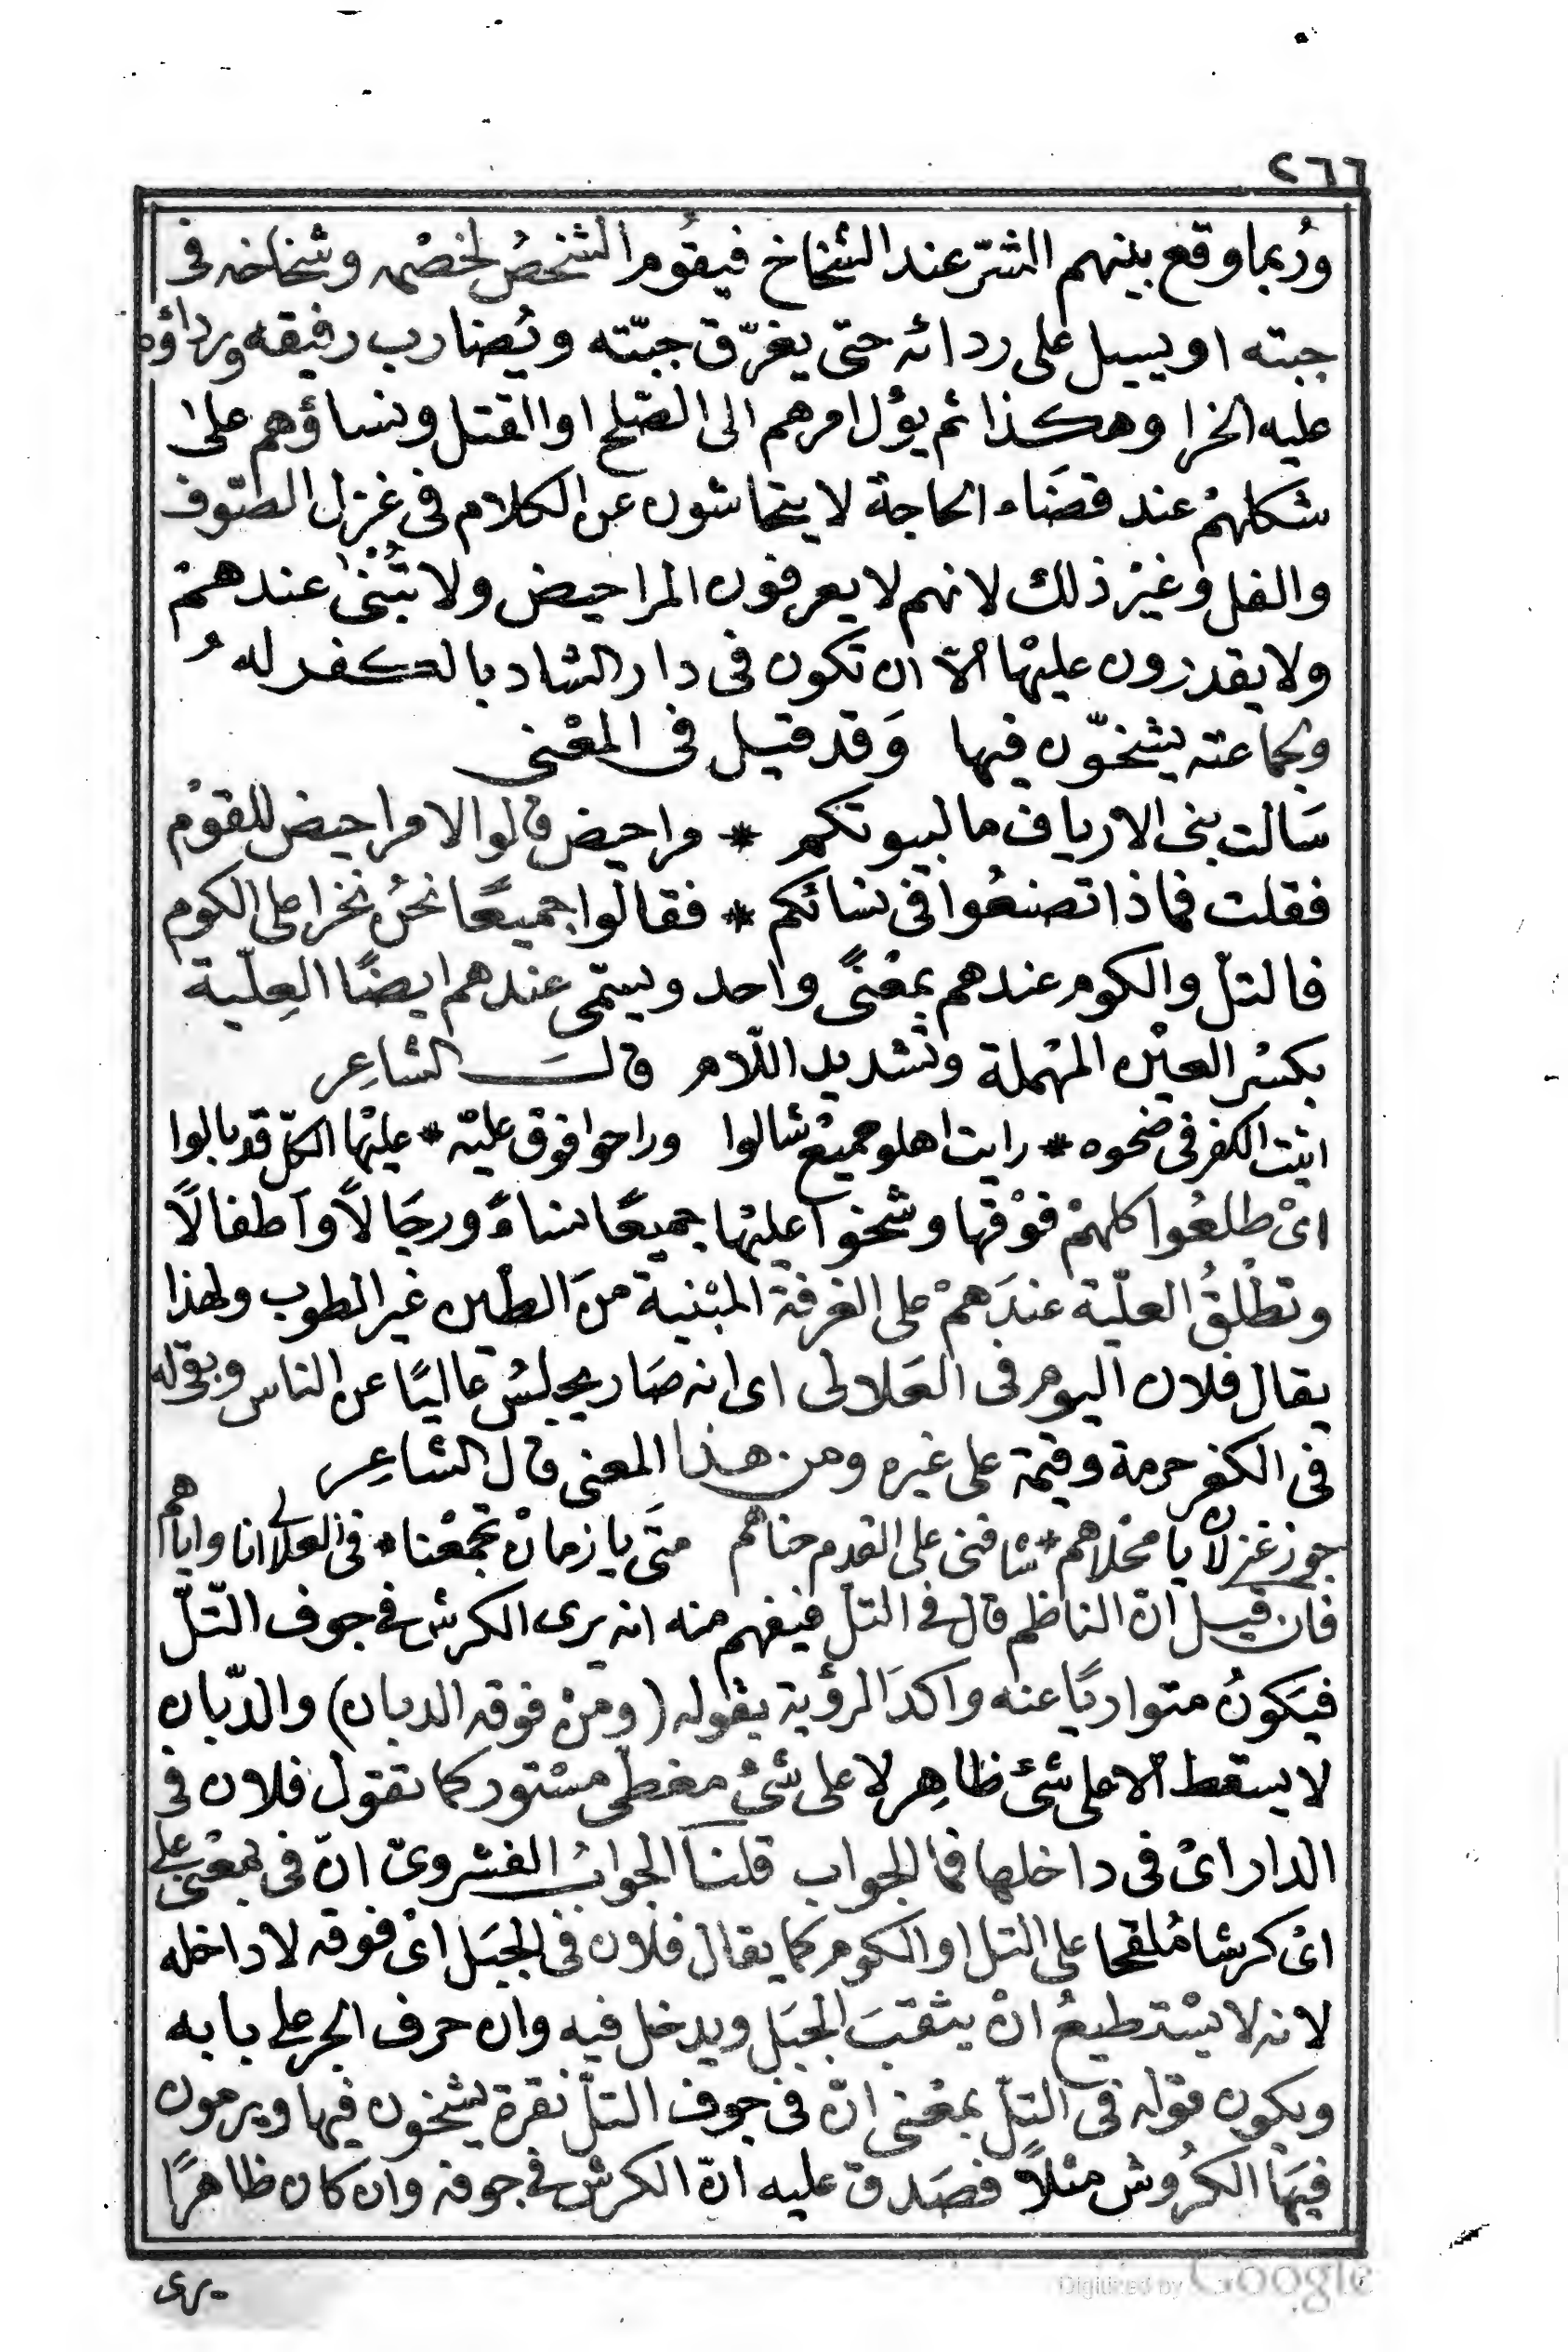 ٢٦٦
ورُبما وقع بينهم الشرّ عند الشخاخ فيقُوم الشخصُ لخصْمه وشخاخه فى
جبته او يسيل على ردائه حتى يغرّق جبّته ويُضارب رفيقه ورداؤه
عليه الخرا وهكذا ثم يؤل امرهم الى الصّلح او القتل ونساؤهم على
شكلهمْ عند قضَاء الحاجة لا يتحاشون عن الكلام فى غزل الصّوف
والفل وغيْر ذلك لانهم لا يعرفون المراحيض ولا تُبْنٰى عندهمْ
ولا يقدرون عليْها الّا ان تكون فى دار الشاد بالكفر له
ولجماعته يشخّون فيها وَقد قيل فى المعْنى
سَالت بنى الارياف ما لبيوتكم * مراحيض قالوا لا مراحيض للقوْم
فقلت فماذا تصنعُوا فى نسائكم * فقالوا جميعًا نحنُ نخرا على الكوم
فالتلّ والكوم عندهم بمعْنًى واحد ويسمّى عندهم ايضًا العِلّية
بكسْر العيْن المهْملة وتشديد اللّام قالَ الشاعِر
اتيت الكفر فى ضحوه * رايت اهلو جميعْ شالوا وراحوا فوق عليّه * عليْها الكلّ قد بالوا
اىْ طلعُوا كلهمْ فوْقها وشخوا عليْها جميعًا نساءً ورجَالاً وآطفالاً
وتطْلقُ العلّية عندَهمْ على الغرفة المبْنية منَ الطّين غير الطوب ولهذا
يقال فلان اليوم فى العَلالى اى انه صَار يجلسُ عاليًا عن الناس وبقى له
فى الكفر حرمة وقيمة على غيره ومن هذا المعنى قال الشاعِر
جوز غزلان يا محْلاهم * شافنى على القدم حناهم متَى يا زمانْ تجمْعْنا * فى العلالى انا واياهم
فان قيل انّ الناظم قال فى التلّ فيفهم منه انه يرى الكرش فى جوف التّلّ
فيَكونُ متواريًا عنه واكدَ الرؤية بقوله (ومنْ فوقه الدبان) والدّبان
لا يسقط الا على شئ ظاهِر لا على شئْ مغطّى مسْتور كما تقول فلان فى
الدار اىْ فى داخلها فما الجواب قلنا الجوابُ الفشروىّ انّ فى بمعْنى على
اىْ كرشا مُلقحا على التل او الكوم كما يقال فلان فى الجبَل اىْ فوقه لا داخله
لانه لا يسْتطيعُ انْ يثقبَ الجبَل ويدخل فيه وان حرف الجر على بابه
ويكون قوله فى التلّ بمعْنى انّ فى جوف التلّ نقرة يشخون فيها ويرمون
فيهَا الكُروش مثلاً فصَدق عليه انّ الكرش فى جوفه وان كان ظاهرًا
يرى
Digitized by Google